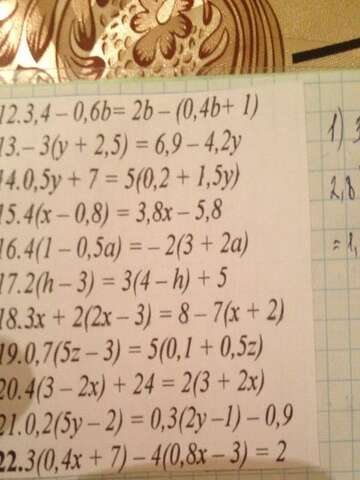 12.3,4 – 0,6b= 2b – (0,4b+ 1)
13.– 3(y + 2,5) = 6,9 – 4,2y
14.0,5y + 7 = 5(0,2 + 1,5y)
15.4(x – 0,8) = 3,8x – 5,8
16.4(1 – 0,5a) = – 2(3 + 2a)
17.2(h – 3) = 3(4 – h) + 5
18.3x + 2(2x – 3) = 8 – 7(x + 2)
19.0,7(5z – 3) = 5(0,1 + 0,5z)
20.4(3 – 2x) + 24 = 2(3 + 2x)
21.0,2(5y – 2) = 0,3(2y –1) – 0,9
22.3(0,4x + 7) – 4(0,8x – 3) = 2
1) 3
2,8
= 1,